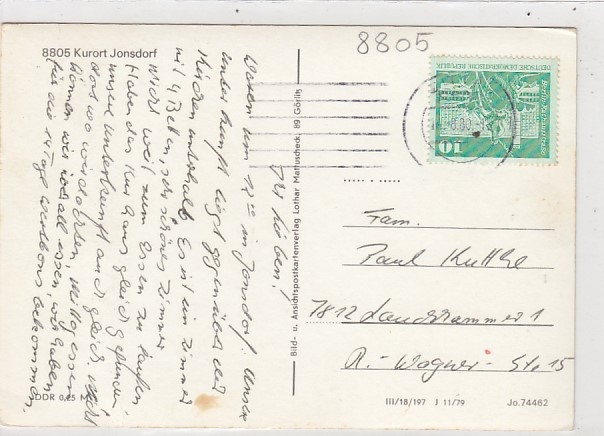 8805
8805 Kurort Jonsdorf
DEUTSCHE DEMOKRATISCHE REPUBLIK
10
Ihr Lieben!
Waren um 12⁰⁰ in Jonsdorf. Unsere
Unterkunft liegt gegenüber der
Kirche unterhalb. Es ist ein Zimmer
mit 4 Betten, sehr schönes Zimmer
nicht weit zum Essen zu laufen.
Haben das Kurhaus gleich gefunden
unsere Unterkunft auch gleich. Nicht
dort wo wir dachten. Mittagessen
können wir überall essen, wir haben
für die 14 Tage bekommen.
Bild- u. Ansichtspostkartenverlag Lothar Mattuscheck, 89 Görlitz
Fam.
Paul Kuttke
7812 Lauchhammer 1
R.-Wagner-Str 15
DDR 0,25 M
III/18/197 J 11/79
Jo.74462